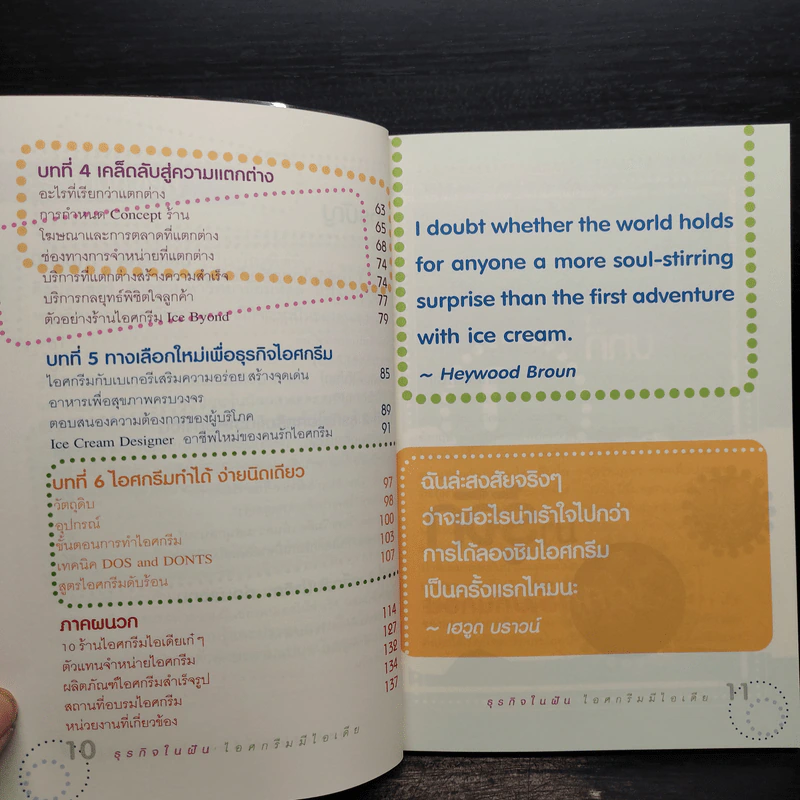 บทที่ 4 เคล็ดลับสู่ความแตกต่าง
อะไรที่เรียกว่าแตกต่าง 63
การกำหนด Concept ร้าน 65
โฆษณาและการตลาดที่แตกต่าง 68
ช่องทางการจำหน่ายที่แตกต่าง 74
บริการที่แตกต่างสร้างความสำเร็จ 74
บริการกลยุทธ์พิชิตใจลูกค้า 77
ตัวอย่างร้านไอศกรีม Ice Byond 79
บทที่ 5 ทางเลือกใหม่เพื่อธุรกิจไอศกรีม
ไอศกรีมกับเบเกอรีเสริมความอร่อย สร้างจุดเด่น 85
อาหารเพื่อสุขภาพครบวงจร
ตอบสนองความต้องการของผู้บริโภค 89
Ice Cream Designer อาชีพใหม่ของคนรักไอศกรีม 91
บทที่ 6 ไอศกรีมทำได้ ง่ายนิดเดียว
วัตถุดิบ 97
อุปกรณ์ 98
ขั้นตอนการทำไอศกรีม 100
เทคนิค DOS and DONTS 103
สูตรไอศกรีมดับร้อน 107
ภาคผนวก
10 ร้านไอศกรีมไอเดียเก๋ ๆ 114
ตัวแทนจำหน่ายไอศกรีม 127
ผลิตภัณฑ์ไอศกรีมสำเร็จรูป 132
สถานที่อบรมไอศกรีม 134
หน่วยงานที่เกี่ยวข้อง 137
10 ธุรกิจในฝัน ไอศกรีมมีไอเดีย
I doubt whether the world holds
for anyone a more soul-stirring
surprise than the first adventure
with ice cream.
~ Heywood Broun
ฉันล่ะสงสัยจริงๆ
ว่าจะมีอะไรน่าเร้าใจไปกว่า
การได้ลองชิมไอศกรีม
เป็นครั้งแรกไหมนะ
~ เฮวูด บราวน์
ธุรกิจในฝัน ไอศกรีมมีไอเดีย 11